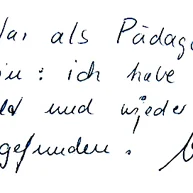 als Pädag
: ich habe
und wieder
gefunden.